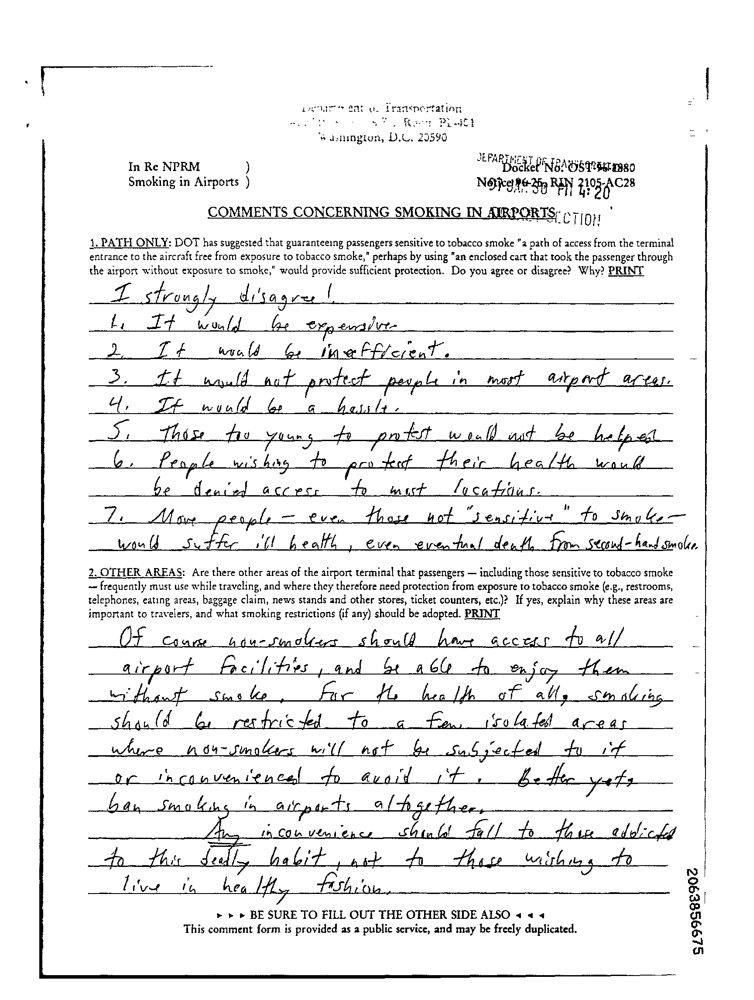 Department of Transportation
Room PL-401
Washington, D.C. 20590
In Re NPRM )
Smoking in Airports )
DEPARTMENT OF
Docket No. OST
Notice 96-25, RIN 2105-AC28
PM 4:20
COMMENTS CONCERNING SMOKING IN AIRPORTS
1. PATH ONLY: DOT has suggested that guaranteeing passengers sensitive to tobacco smoke "a path of access from the terminal
entrance to the aircraft free from exposure to tobacco smoke," perhaps by using "an enclosed cart that took the passenger through
the airport without exposure to smoke," would provide sufficient protection. Do you agree or disagree? Why? PRINT
I strongly disagree!
1. It would be expensive
2. It would be inefficient.
3. It would not protect people in most airport areas.
4. It would be a hassle.
5. Those too young to protest would not be helped
6. People wishing to protect their health would
be denied access to most locations.
7. More people - even those not "sensitive" to smoke -
would suffer ill health, even eventual death from second-hand smoke.
2. OTHER AREAS: Are there other areas of the airport terminal that passengers — including those sensitive to tobacco smoke
— frequently must use while traveling, and where they therefore need protection from exposure to tobacco smoke (e.g., restrooms,
telephones, eating areas, baggage claim, news stands and other stores, ticket counters, etc.)? If yes, explain why these areas are
important to travelers, and what smoking restrictions (if any) should be adopted. PRINT
Of course non-smokers should have access to all
airport facilities, and be able to enjoy them
without smoke. For the health of all, smoking
should be restricted to a few isolated areas
where non-smokers will not be subjected to it
or inconvenienced to avoid it. Better yet,
ban smoking in airports altogether.
Any inconvenience should fall to those addicted
to this deadly habit, not to those wishing to
live in healthy fashion.
► ► ► BE SURE TO FILL OUT THE OTHER SIDE ALSO ◄ ◄ ◄
This comment form is provided as a public service, and may be freely duplicated.
2063856675